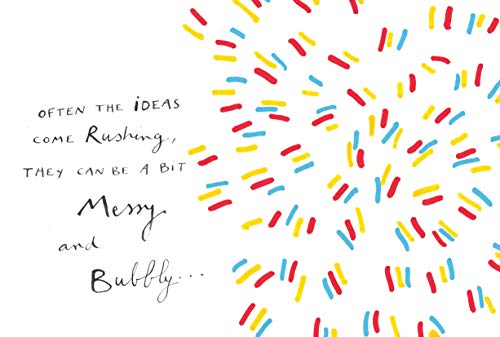 OFTEN THE iDEAS
COME Rushing,
THEY CAN BE A BIT
Messy
and
Bubbly...